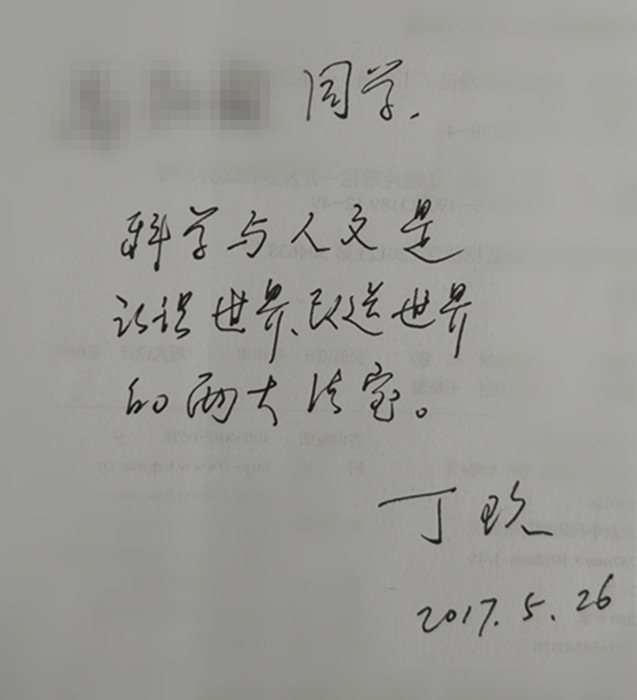 同学,
科学与人文是
认识世界、改造世界
的两大法宝。
丁玖
2017.5.26